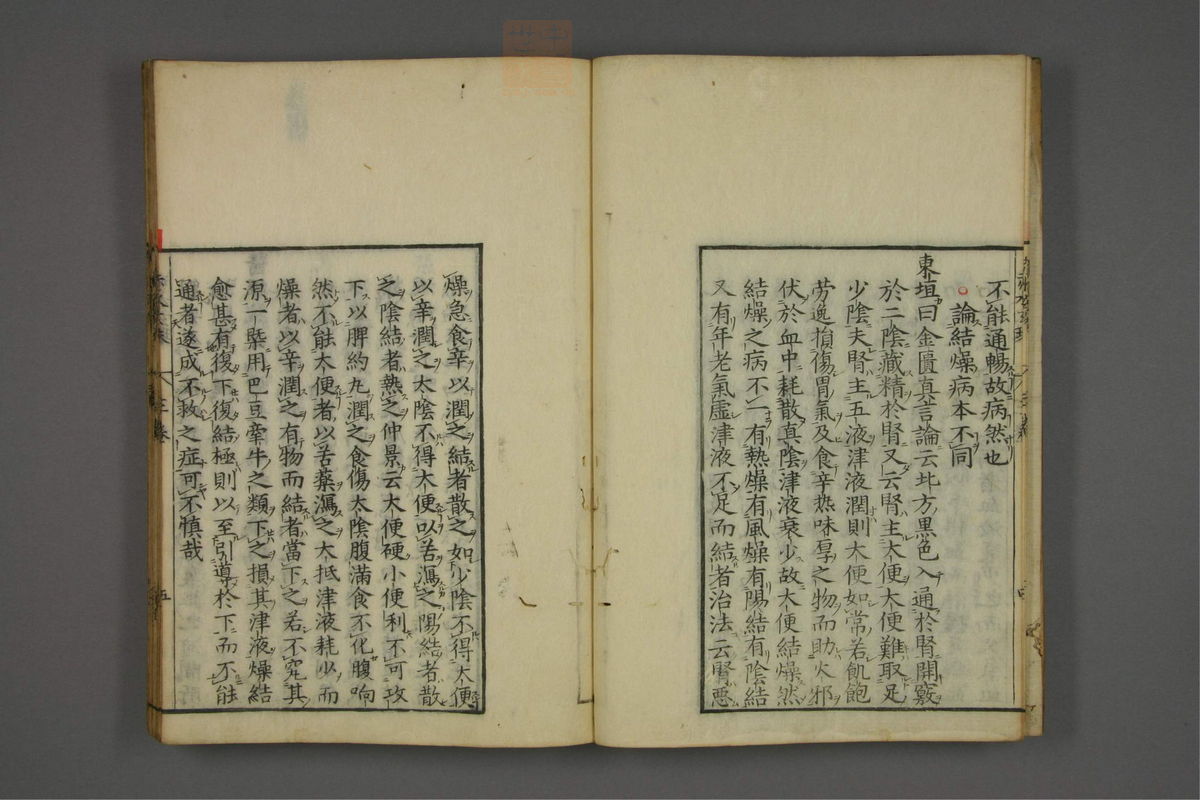 不能通暢故病然也
論結燥病本不同
東垣曰金匱真言論云北方黒色入通於腎開竅
於二陰藏精於腎又云腎主大便大便難取足
少陰夫腎主五液津液潤則大便如常若飢飽
労逸損傷胃氣及食辛热味厚之物而助火邪
伏於血中耗散真陰津液衰少故大便結燥然
結燥之病不一有熱燥有風燥有陽結有陰結
又有年老氣虚津液不足而結者治法云腎悪
燥急食辛以潤之結者散之如少陰不得大便
以辛潤之太陰不得大便以苦瀉之陽結者散
之陰結者熱之仲景云大便硬小便利不可攻
下以脾約丸潤之食傷太陰腹滿食不化腹响
然不能大便者以苦藥瀉之大抵津液耗少而
燥者以辛潤之有物而結者當下之若不究其
源一槩用巴豆牽牛之類下之損其津液燥結
愈甚有復下復結極則以至引導於下而不能
通者遂成不救之症可不慎哉